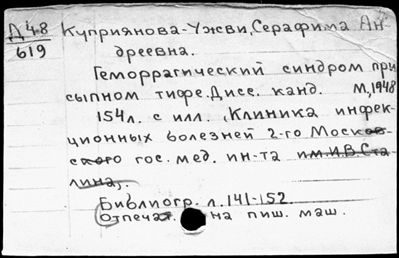 Д48
619
Куприянова-Ужви, Серафима Ан-
дреевна.
Геморрагический синдром при
сыпном тифе. Дисс. канд. М, 1948
154л. с илл. (Клиника инфек-
ционных болезней 2-го Москов-
ского гос. мед. ин-та им. И.В. Ста-
лина).
Библиогр. л. 141-152.
Отпечат. на пиш. маш.